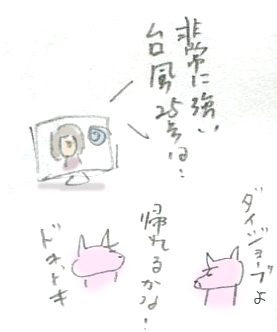 非常に強い
台風25号は!
ダイジョーブよ
帰れるかな!
ドキドキ